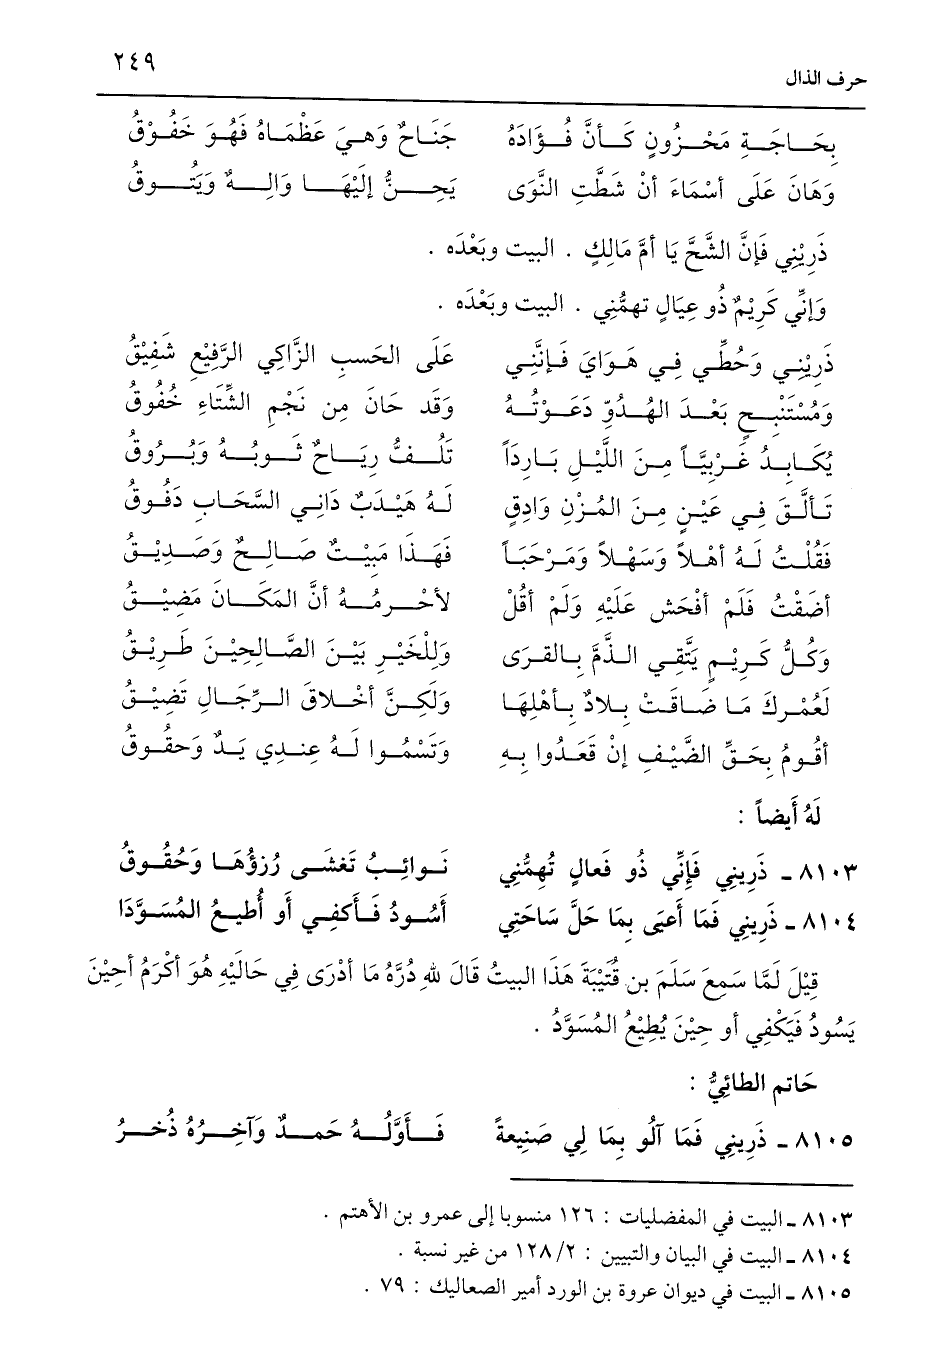 حرف الذال ٢٤٩
بِحَاجَةِ مَحْزُونٍ كَأَنَّ فُؤَادَهُ جَنَاحٌ وَهِيَ عَظْمَاهُ فَهُوَ خَفُوْقُ
وَهَانَ عَلَى أَسْمَاءَ أنْ شَطَّتِ النَّوَى يَحِنُّ إِلَيْهَا وَالِهٌ وَيَتُوقُ
ذَرِيْنِي فَإِنَّ الشَّحَّ يَا أُمَّ مَالِكٍ . البيت وبَعْدَه .
وَإِنِّي كَرِيْمٌ ذُو عِيَالٍ تهمُّنِي . البيت وبَعْدَه .
ذَرِيْنِي وَحُطِّي فِي هَوَايَ فَإِنَّنِي عَلَى الحَسبِ الزَّاكِي الرَّفِيْعِ شَفِيْقُ
وَمُسْتَنْبِحٍ بَعْدَ الهُدُوّ دَعَوْتُهُ وَقَد حَانَ مِن نَجْمِ الشِّتَاءِ خُفُوقُ
يُكَابِدُ عَرْنِيَّاً مِنَ اللَّيْلِ بَارِدَاً تَلُفُّ رِيَاحٌ ثَوبُهُ وَبُرُوقُ
تَأَلَّقَ فِي عَيْنٍ مِنَ المُزْنِ وَادِقٍ لَهُ هَيْدَبٌ دَانِي السَّحَابِ دَفُوقُ
فَقُلْتُ لَهُ أهْلاً وَسَهْلاً وَمَرْحَبَاً فَهَذَا مَبِيْتٌ صَالِحٌ وَصَدِيْقُ
أضَفْتُ فَلَمْ أفْحَش عَلَيْهِ وَلَمْ أقُلْ لأحْرِمُهُ أنَّ المَكَانَ مَضِيْقُ
وَكُلُّ كَرِيْمٍ يَتَّقِي الذَّمَّ بِالقِرَى وَلِلْخَيْرِ بَيْنَ الصَّالِحِيْنَ طَرِيْقُ
لَعُمْركَ مَا ضَاقَتْ بِلاَدٌ بِأهْلِهَا وَلَكِنَّ أخْلاَقَ الرِّجَالِ تَضِيْقُ
أقُومُ بِحَقِّ الضَّيْفِ إنْ قَعَدُوا بِهِ وَتَسْمُوا لَهُ عِندِي يَدٌ وَحقُوقُ
لَهُ أَيضاً :
٨١٠٣ ـ ذَرِينِي فَإِنِّي ذُو فَعالٍ تُهِمُّنِي نَوائِبُ تَغشَى رُزؤُهَا وَحُقُوقُ
٨١٠٤ ـ ذَرِينِي فَمَا أَعيَى بِمَا حَلَّ سَاحَتِي أَسُودُ فَأَكفِي أَو أُطيعُ المُسَوَّدَا
قِيْلَ لَمَّا سَمِعَ سَلَم بن قُتَيْبَةَ هَذَا البيتُ قَالَ للهِ دُرَّهُ مَا أدْرَى فِي حَالَيْهِ هُوَ أكْرَمُ أحِيْنَ
يَسُودُ فَيَكْفِي أو حِيْنَ يُطِيْعُ المُسَوَّدُ .
حَاتم الطائِيُّ :
٨١٠٥ ـ ذَرِينِي فَمَا آلُو بِمَا لِي صَنِيعةً فَأَوَّلُهُ حَمدٌ وَآخِرُهُ ذُخرُ
٨١٠٣ ـ البيت في المفضليات : ١٢٦ منسوبا إلى عمرو بن الأهتم .
٨١٠٤ ـ البيت في البيان والتبيين : ١٢٨/٢ من غير نسبة .
٨١٠٥ ـ البيت في ديوان عروة بن الورد أمير الصعاليك : ٧٩ .